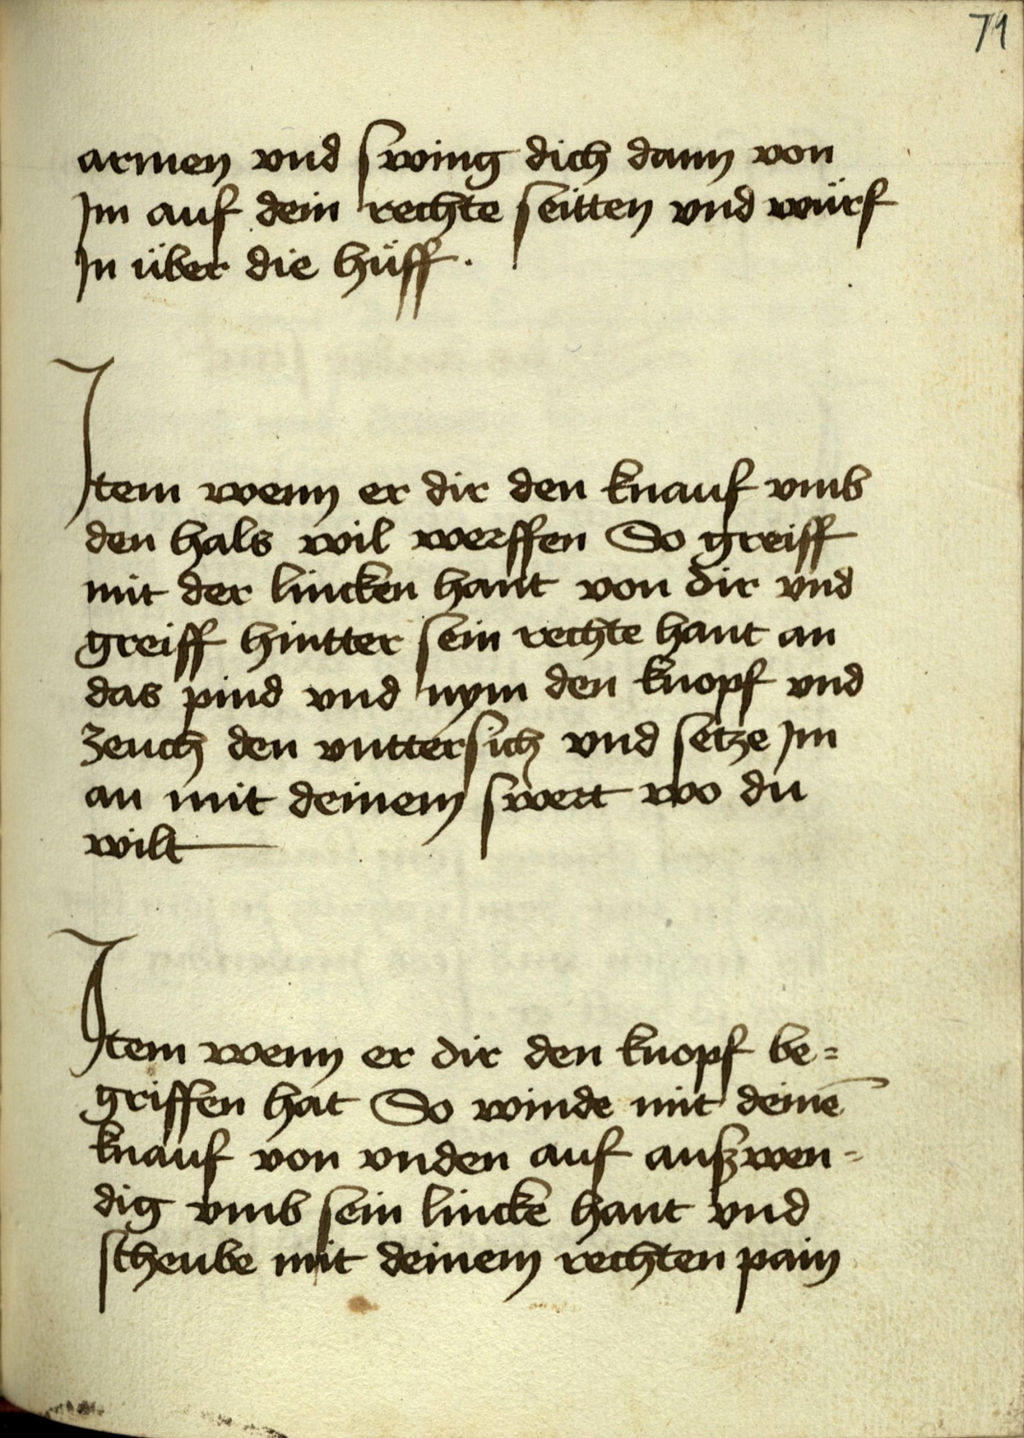 71
armen vnd swing dich dann von
Jm auf dein rechte seitten vnd würf
Jn über die hüff.
Jtem wenn er dir den knauf vmb
den hals wil werffen So greiff
mit der lincken hant von dir vnd
greiff hintter sein rechte hant an
das pind vnd nym den knopf vnd
zeuch den vnttersich vnd setze Jm
an mit deinem swert wo du
wilt
Jtem wenn er dir den knopf be=
griffen hat So winde mit deinē
knauf von vnden auf auszwen=
dig vmb sein lincke hant vnd
scheube mit deinem rechten pain